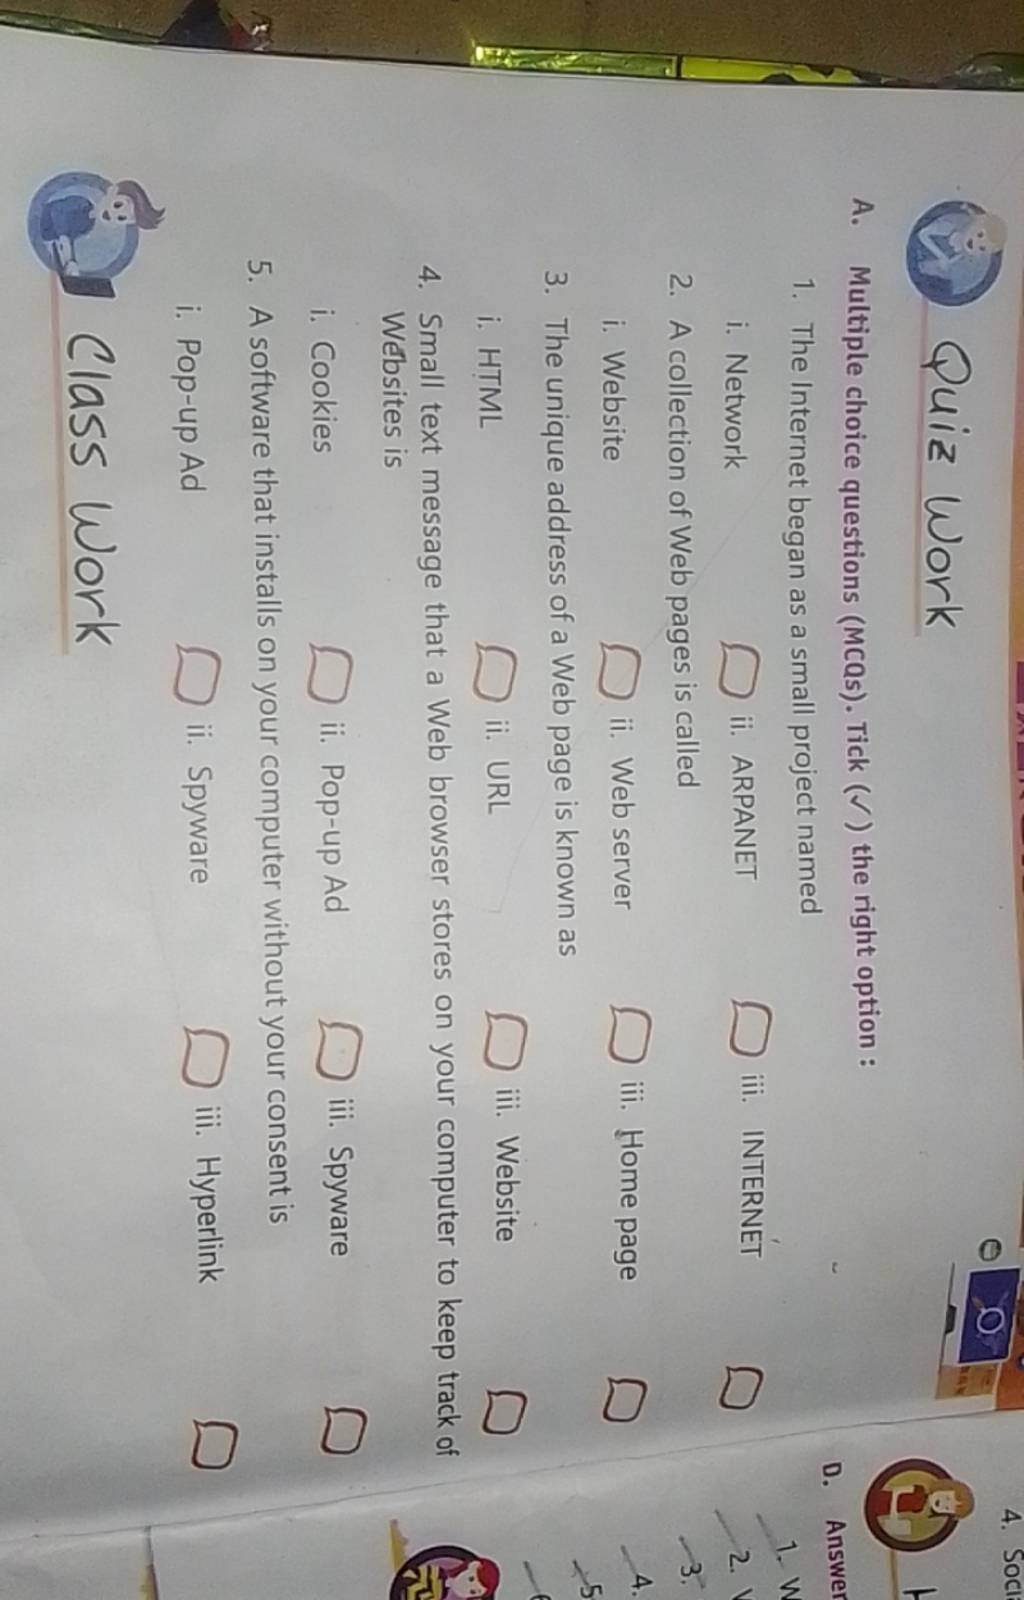 Quiz Work
A. Multiple choice questions (MCQs). Tick (✓) the right option :
1. The Internet began as a small project named
i. Network ii. ARPANET iii. INTERNET
2. A collection of Web pages is called
i. Website ii. Web server iii. Home page
3. The unique address of a Web page is known as
i. HTML ii. URL iii. Website
4. Small text message that a Web browser stores on your computer to keep track of
Websites is
i. Cookies ii. Pop-up Ad iii. Spyware
5. A software that installs on your computer without your consent is
i. Pop-up Ad ii. Spyware iii. Hyperlink
Class Work
4.
D. Answer
1. W
2.
3.
4.
5